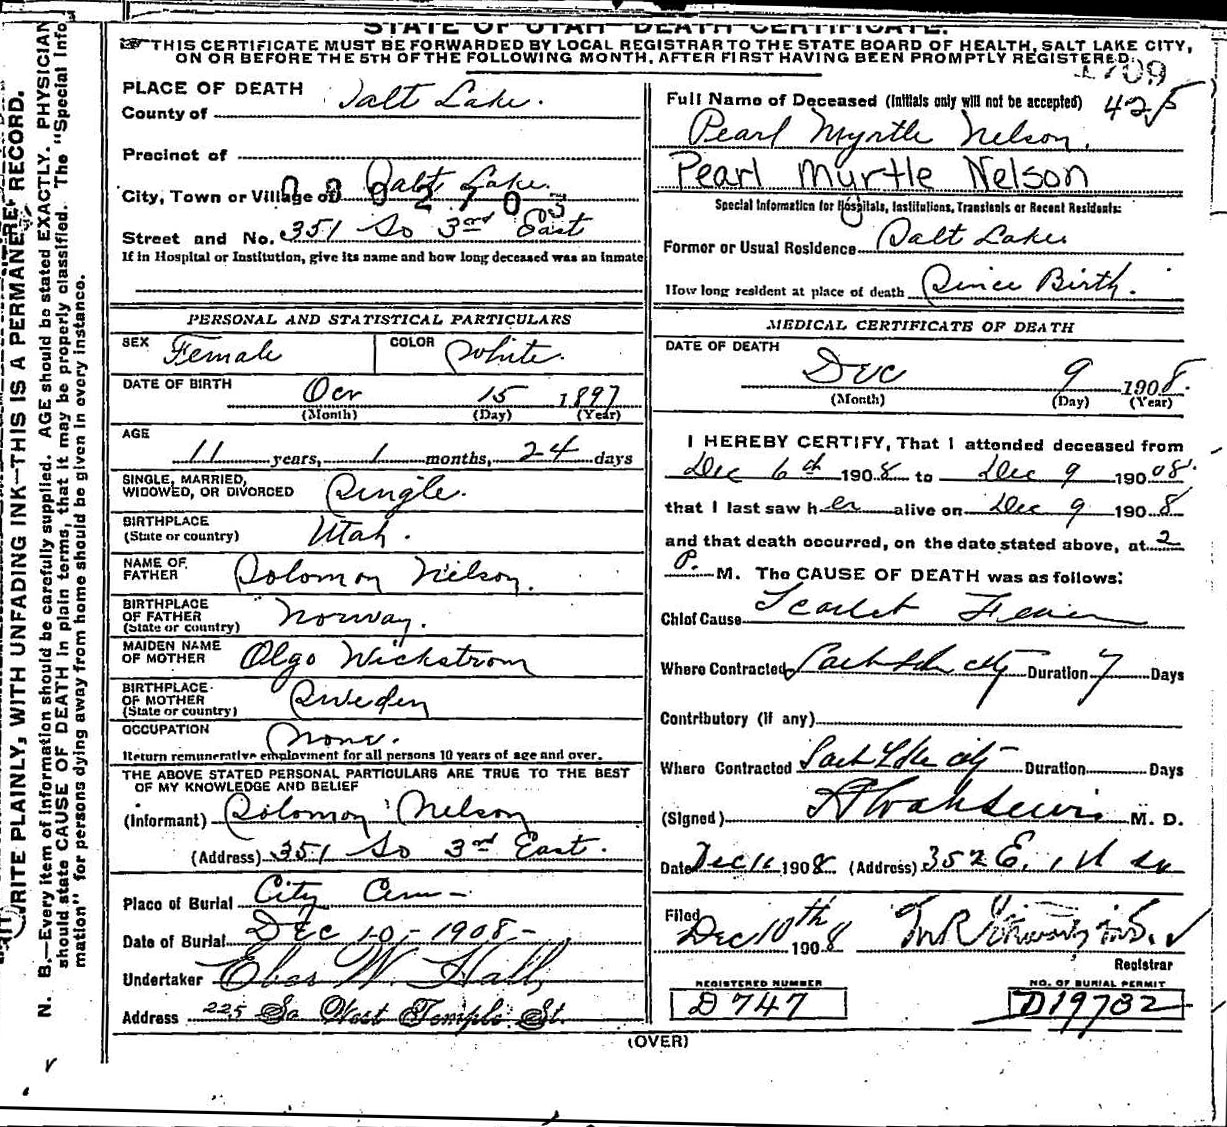 STATE OF UTAH—DEATH CERTIFICATE.
THIS CERTIFICATE MUST BE FORWARDED BY LOCAL REGISTRAR TO THE STATE BOARD OF HEALTH, SALT LAKE CITY,
ON OR BEFORE THE 5TH OF THE FOLLOWING MONTH, AFTER FIRST HAVING BEEN PROMPTLY REGISTERED.
1709
PLACE OF DEATH
County of Salt Lake.
Precinct of
City, Town or Village of Salt Lake
0 0 0 2 7 0
Street and No. 351 So 3rd East
If in Hospital or Institution, give its name and how long deceased was an inmate
PERSONAL AND STATISTICAL PARTICULARS
SEX Female COLOR White.
DATE OF BIRTH Oct 15 1897
(Month) (Day) (Year)
AGE
11 years, 1 months, 24 days
SINGLE, MARRIED,
WIDOWED, OR DIVORCED Single.
BIRTHPLACE
(State or country) Utah.
NAME OF
FATHER Solomon Nelson.
BIRTHPLACE
OF FATHER
(State or country) Norway.
MAIDEN NAME
OF MOTHER Olgo Wickstrom
BIRTHPLACE
OF MOTHER
(State or country) Sweden
OCCUPATION None.
Return remunerative employment for all persons 10 years of age and over.
THE ABOVE STATED PERSONAL PARTICULARS ARE TRUE TO THE BEST
OF MY KNOWLEDGE AND BELIEF
(Informant) Solomon Nelson
(Address) 351 So 3rd East.
Place of Burial City Cem
Date of Burial Dec 10 - 1908 -
Undertaker Eber W. Hall
Address 225 So West Temple St.
Full Name of Deceased (Initials only will not be accepted) 425
Pearl Myrtle Nelson.
Pearl Myrtle Nelson
Special Information for Hospitals, Institutions, Transients or Recent Residents:
Former or Usual Residence Salt Lake
How long resident at place of death Since Birth.
MEDICAL CERTIFICATE OF DEATH
DATE OF DEATH
Dec 9 1908.
(Month) (Day) (Year)
I HEREBY CERTIFY, That I attended deceased from
Dec 6th 1908 to Dec 9 190 08.
that I last saw her alive on Dec 9 1908
and that death occurred, on the date stated above, at 2
P. M. The CAUSE OF DEATH was as follows:
Chief Cause Scarlet Fever
Where Contracted Salt Lake City Duration 7 Days
Contributory (if any)
Where Contracted Salt Lake City Duration Days
(Signed) M. D.
Date Dec 1908 (Address) 352 E. 1st So
Filed
Dec 10th 1908
Registrar
REGISTERED NUMBER
D 747
NO. OF BURIAL PERMIT
D19782
(OVER)
WRITE PLAINLY, WITH UNFADING INK—THIS IS A PERMANENT RECORD.
N. B.—Every item of information should be carefully supplied. AGE should be stated EXACTLY. PHYSICIAN
should state CAUSE OF DEATH in plain terms, that it may be properly classified. The "Special Info
mation" for persons dying away from home should be given in every instance.